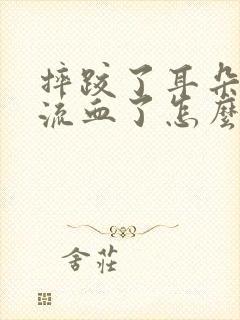 摔跤了耳朵
流血了怎麼
舍莊